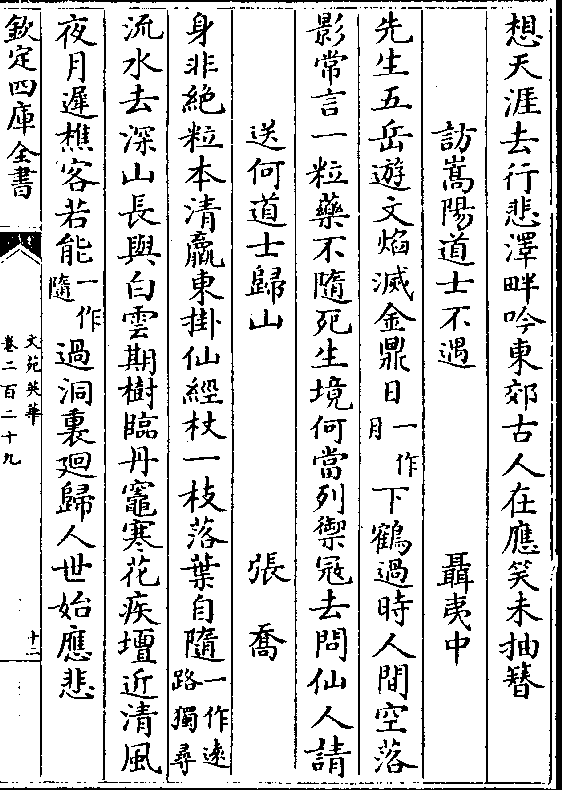 想天涯去行悲澤畔吟東郊古人在應笑未抽簪
訪嵩陽道士不遇 聶夷中
先生五岳遊文焰滅金鼎日一作月下鶴過時人間空落
影常言一粒藥不隨死生境何當列禦冦去問仙人請
送何道士歸山 張喬
身非絶粒本清羸束掛仙經杖一枝落葉自隨一作遠路獨尋
流水去深山長與白雲期樹臨丹竈寒花疾壇近清風
夜月遲樵客若能一作隨過洞裏廻歸人世始應悲
欽定四庫全書
文苑英華
卷二百二十九
十二